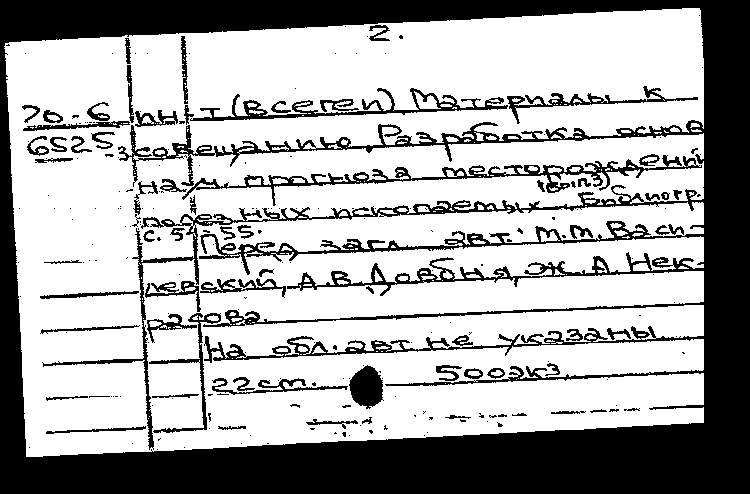 2.
70-6 ин-т (всегеи) Материалы к
6525-3 совещанию "Разработка основ
науч. прогноза месторождений
полезных ископаемых" (вып3) Библиогр.
с. 54-55.
Перед загл. авт.: М.М. Васи-
левский, А.В. Довбня, Ж.Д. Нек-
расова.
На обл. авт. не указаны
22см. 500экз.